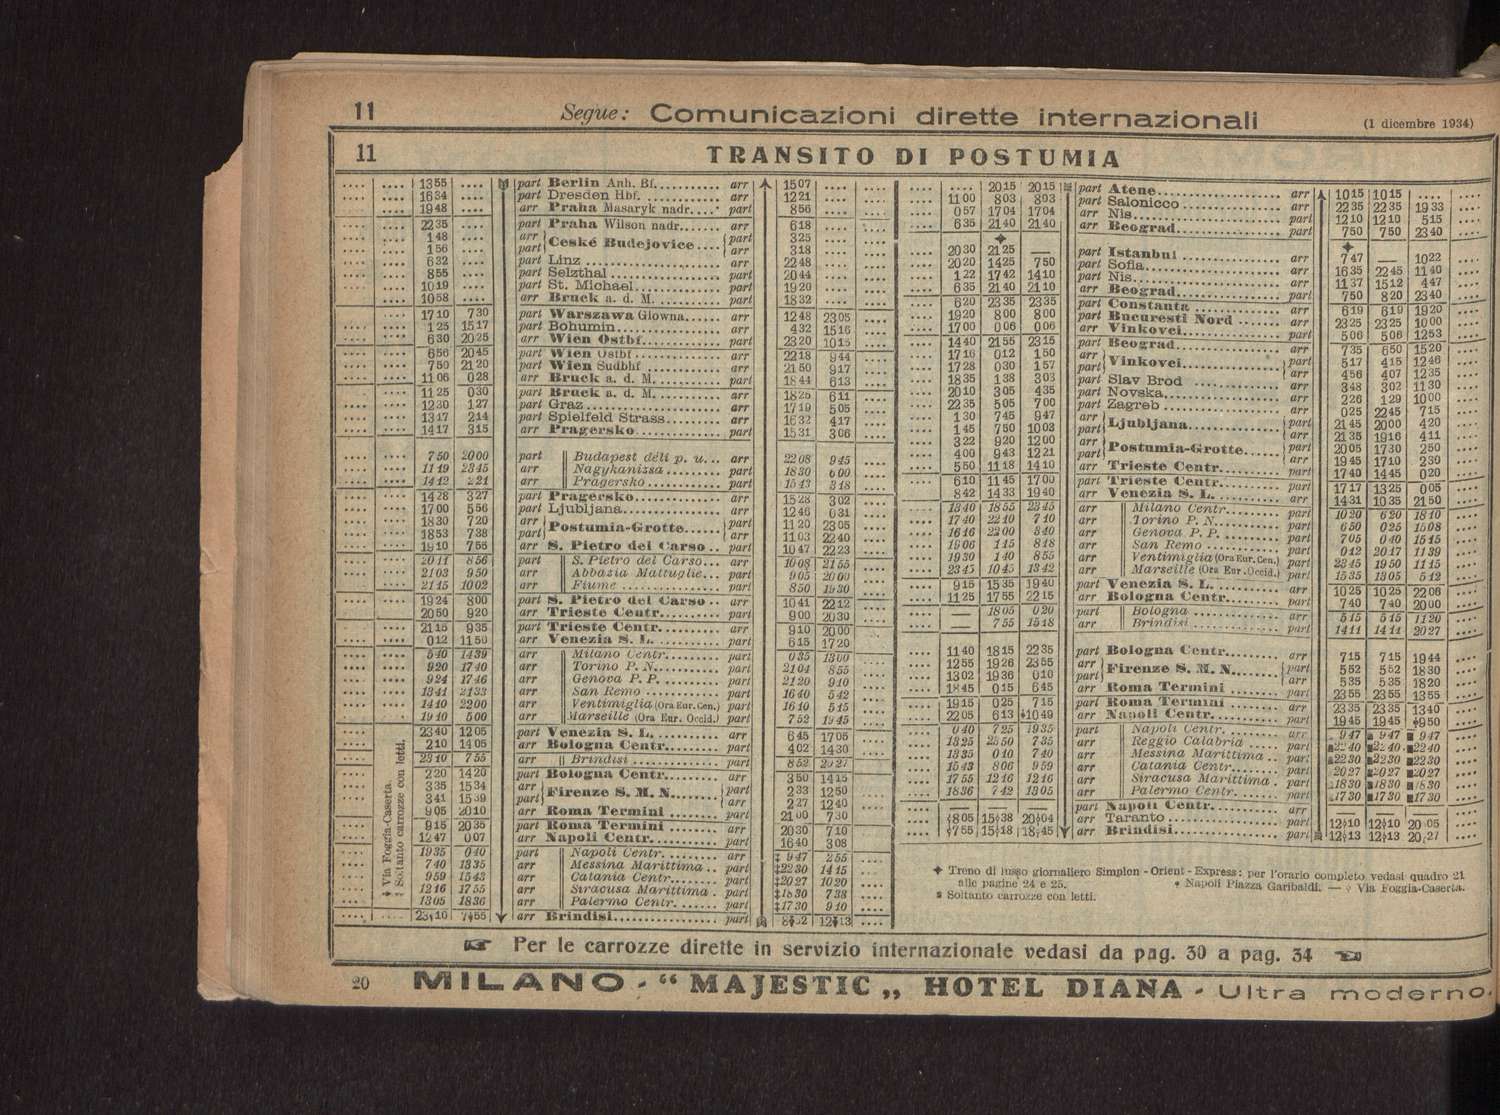 11 Segue: Comunicazioni dirette internazionali (1 dicembre 1934)
11 TRANSITO DI POSTUMIA
.... .... 1355 .... part Berlin Anh. Bf. arr 1507 .... ....
.... .... 1634 .... part Dresden Hbf. arr 1221 .... ....
.... .... 1948 .... arr Praha Masaryk nadr. part 856 .... ....
.... .... 2235 .... part Praha Wilson nadr. arr 618 .... ....
.... .... 148 .... arr Ceské Budejovice part 325 .... ....
.... .... 156 .... part arr 318 .... ....
.... .... 632 .... part Linz arr 2248 .... ....
.... .... 855 .... part Selzthal arr 2044 .... ....
.... .... 1019 .... part St. Michael arr 1920 .... ....
.... .... 1058 .... arr Bruck a. d. M. part 1832 .... ....
.... .... 1710 730 part Warszawa Glowna arr 1248 2305 ....
.... .... 125 1517 part Bohumin arr 432 1516 ....
.... .... 630 2025 arr Wien Ostbf. part 2320 1015 ....
.... .... 656 2045 part Wien Ostbf arr 2218 944 ....
.... .... 750 2120 part Wien Sudbhf arr 2150 917 ....
.... .... 1106 028 arr Bruck a. d. M. part 1844 613 ....
.... .... 1125 030 part Bruck a. d. M. arr 1825 611 ....
.... .... 1230 127 part Graz arr 1719 505 ....
.... .... 1317 214 part Spielfeld Strass arr 1632 417 ....
.... .... 1417 315 arr Pragersko part 1531 306 ....
.... .... 750 2000 part Budapest déli p. u. arr 2208 945 ....
.... .... 1119 2345 arr Nagykanizsa part 1830 600 ....
.... .... 1412 221 arr Pragersko part 1543 318 ....
.... .... 1428 327 part Pragersko arr 1528 302 ....
.... .... 1700 556 part Ljubljana arr 1246 031 ....
.... .... 1830 720 arr Postumia-Grotte part 1120 2305 ....
.... .... 1853 738 part arr 1103 2240 ....
.... .... 1910 755 arr S. Pietro del Carso part 1047 2223 ....
.... .... 2011 856 part S. Pietro del Carso arr 1008 2155 ....
.... .... 2103 950 arr Abbazia Mattuglie part 905 2000 ....
.... .... 2145 1002 arr Fiume part 850 1930 ....
.... .... 1924 800 part S. Pietro del Carso arr 1041 2212 ....
.... .... 2050 920 arr Trieste Centr. part 900 2030 ....
.... .... 2115 935 part Trieste Centr. arr 910 2000 ....
.... .... 012 1150 arr Venezia S. L. part 615 1720 ....
.... .... 540 1439 arr Milano Centr. part 035 1300 ....
.... .... 920 1740 arr Torino P. N. part 2104 855 ....
.... .... 924 1746 arr Genova P. P. part 2120 910 ....
.... .... 1341 2133 arr San Remo part 1640 542 ....
.... .... 1410 2200 arr Ventimiglia (Ora Eur. Cen.) part 1610 515 ....
.... .... 1910 500 arr Marseille (Ora Eur. Occid.) part 752 1945 ....
2340 1205 part Venezia S. L. arr 645 1705 ....
210 1405 arr Bologna Centr. part 402 1430 ....
2310 755 arr Brindisi part 852 2027 ....
220 1420 part Bologna Centr. arr 350 1415 ....
335 1534 arr Firenze S. M. N. part 233 1250 ....
341 1539 part arr 227 1240 ....
905 2010 arr Roma Termini part 2100 730 ....
915 2035 part Roma Termini arr 2030 710 ....
1247 007 arr Napoli Centr. part 1640 308 ....
1935 040 part Napoli Centr. arr ‡ 947 255 ....
740 1335 arr Messina Marittima part ‡2230 1415 ....
959 1543 arr Catania Centr. part ‡2027 1020 ....
1216 1755 arr Siracusa Marittima part ‡1830 738 ....
1305 1836 arr Palermo Centr. part ‡1730 910 ....
23†10 7†55 arr Brindisi part 12†13 ....
† Via Foggia-Caserta.
‡ Soltanto carrozze con letti.
.... .... 2015 2015 part Atene arr 1015 1015 .... ....
.... 1100 803 803 part Salonicco arr 2235 2235 1933 ....
.... 057 1704 1704 arr Nis part 1210 1210 515 ....
.... 635 2140 2140 arr Beograd part 750 750 2340 ....
.... 2030 2125 — part Istanbul arr 747 — 1022 ....
.... 2020 1425 750 part Sofia arr 1635 2245 1140 ....
.... 122 1742 1410 part Nis arr 1137 1512 447 ....
.... 635 2140 2110 arr Beograd part 750 820 2340 ....
.... 620 2335 2335 part Constanta arr 619 619 1920 ....
.... 1920 800 800 part Bucuresti Nord arr 2325 2325 1000 ....
.... 1700 006 006 arr Vinkovci part 506 506 1253 ....
.... 1440 2155 2315 part Beograd arr 735 650 1520 ....
.... 1716 012 150 arr Vinkovci part 517 415 1246 ....
.... 1728 030 157 part arr 456 407 1235 ....
.... 1835 138 303 part Slav Brod arr 348 302 1130 ....
.... 2010 305 435 part Novska arr 226 129 1000 ....
.... 2235 505 700 part Zagreb arr 025 2245 715 ....
.... 130 745 947 arr Ljubljana part 2145 2000 420 ....
.... 145 750 1003 part arr 2135 1916 411 ....
.... 322 920 1200 arr Postumia-Grotte part 2005 1730 250 ....
.... 400 943 1221 part arr 1945 1710 230 ....
.... 550 1118 1410 arr Trieste Centr. part 1740 1445 020 ....
.... 610 1145 1700 part Trieste Centr. arr 1717 1325 005 ....
.... 842 1433 1940 arr Venezia S. L. part 1431 1035 2150 ....
.... 1340 1855 2345 arr Milano Centr. part 1020 620 1810 ....
.... 1740 2210 710 arr Torino P. N. part 650 025 1508 ....
.... 1616 2200 840 arr Genova P. P. part 705 040 1515 ....
.... 1906 115 818 arr San Remo part 012 2017 1139 ....
.... 1930 140 855 arr Ventimiglia (Ora Eur. Cen.) part 2345 1950 1115 ....
.... 2345 1045 1342 arr Marseille (Ora Eur. Occid.) part 1535 1305 512 ....
.... 915 1535 1940 part Venezia S. L. arr 1025 1025 2206 ....
.... 1125 1755 2215 arr Bologna Centr. part 740 740 2000 ....
.... — 1805 020 part Bologna arr 515 515 1120 ....
.... — 755 1518 arr Brindisi part 1411 1411 2027 ....
.... 1140 1815 2235 part Bologna Centr. arr 715 715 1944 ....
.... 1255 1926 2355 arr Firenze S. M. N. part 552 552 1830 ....
.... 1302 1936 010 part arr 535 535 1820 ....
.... 1845 015 645 arr Roma Termini part 2355 2355 1355 ....
.... 1915 025 715 part Roma Termini arr 2335 2335 1340 ....
.... 2205 613 1049 arr Napoli Centr. part 1945 1945 950 ....
.... 040 725 1935 part Napoli Centr. arr 947 947 947 ....
.... 1325 2350 735 arr Reggio Calabria part 2240 2240 2240 ....
.... 1335 010 740 arr Messina Marittima part 2230 2230 2230 ....
.... 1543 806 959 arr Catania Centr. part 2027 2027 2027 ....
.... 1755 1216 1216 arr Siracusa Marittima part 1830 1830 1830 ....
.... 1836 742 1305 arr Palermo Centr. part 1730 1730 1730 ....
.... — — — part Napoli Centr. arr — — — ....
.... 805 15 38 20 04 arr Taranto part 12 10 12 10 20 05 ....
.... 755 15 18 18 45 arr Brindisi part 12 13 12 13 20 27 ....
✦ Treno di lusso giornaliero Simplon - Orient - Express: per l'orario completo vedasi quadro 21
alle pagine 24 e 25. • Napoli Piazza Garibaldi. — † Via Foggia-Caserta.
Soltanto carrozze con letti.
☛ Per le carrozze dirette in servizio internazionale vedasi da pag. 30 a pag. 34 ☚
20 MILANO - “ MAJESTIC „ HOTEL DIANA - Ultra moderno.